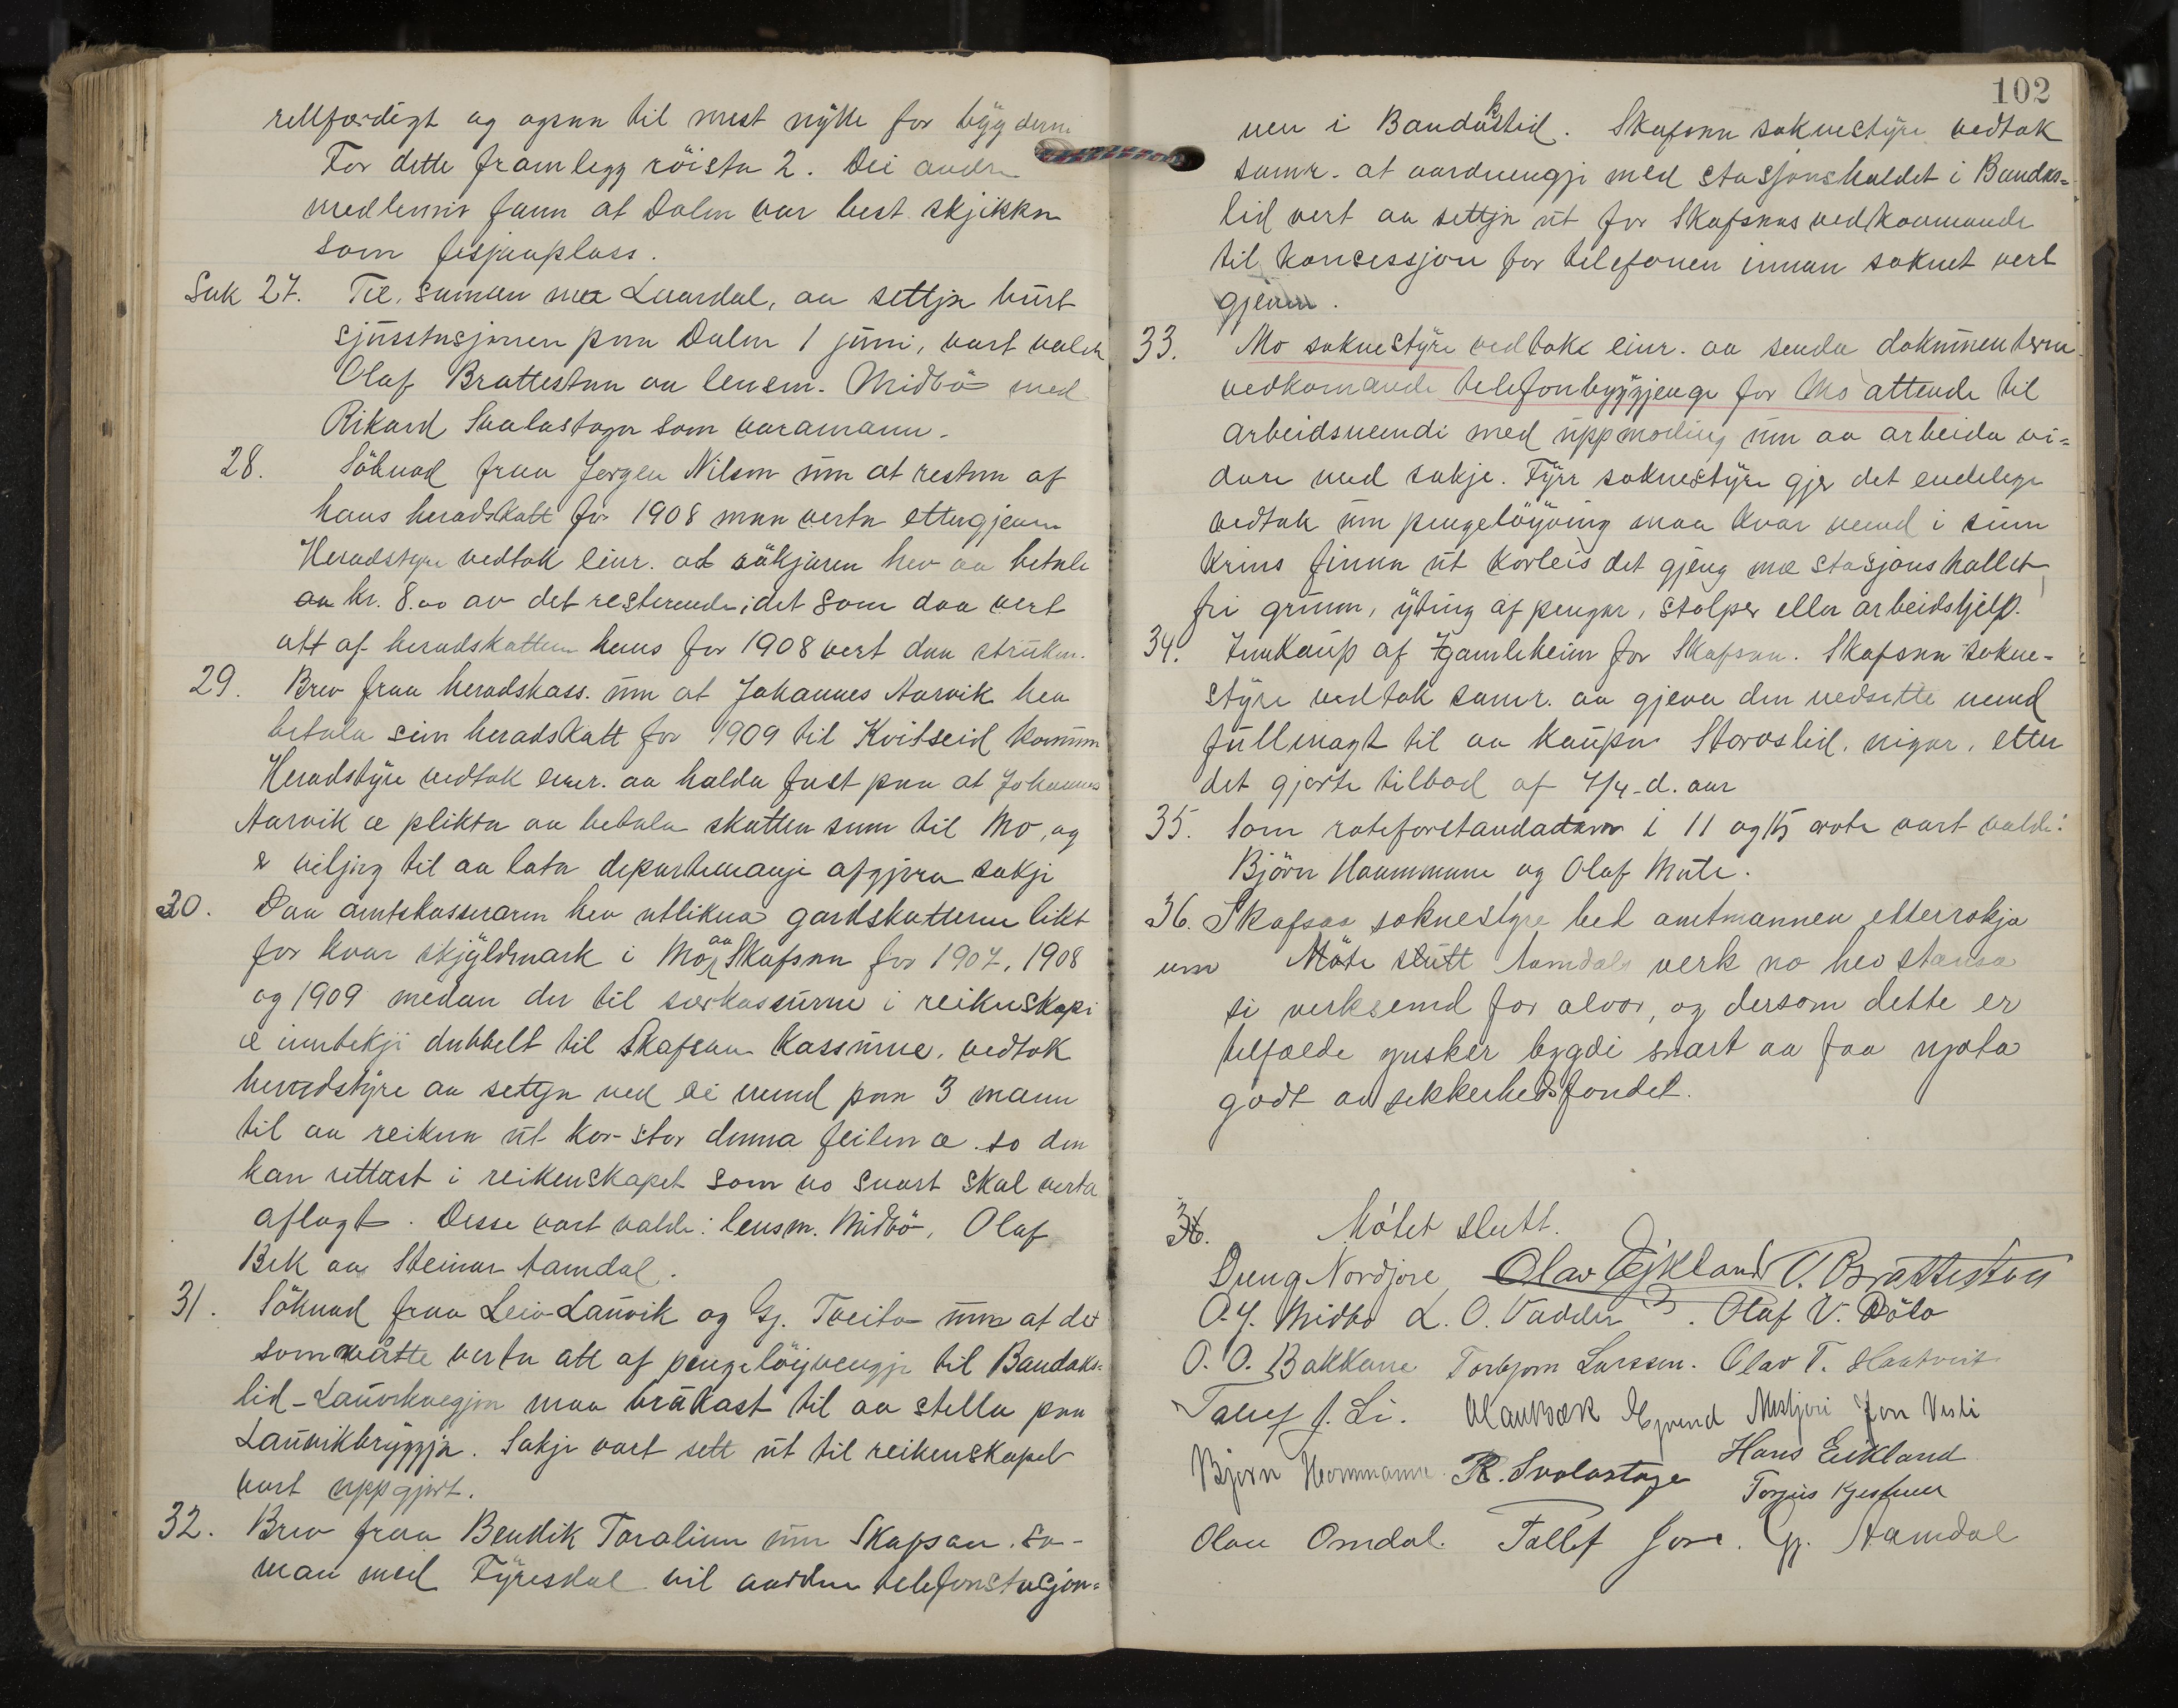 rettferdigt og ogsaa til mest nytte for bygderne
For dette framlegg röista 2. Dei andre
medlemir fann at Dalen var best skjikka
som fesjaaplass.
Sak 27. Til, saman mæ Laardal, aa settja burt
sjusstasjonen paa Dalen 1 juni, vart valde
Olaf Brattestaa aa lensm. Midbö med
Rikard Svalastoga som varamann.
28. Söknad fraa Jørgen Nilsen um at resten af
hans heradskatt for 1908 maa verta ettergjeven
Heradstyre vedtok einr. at søkjaren hev aa betale
kr. 8.00 av det resterende; det som daa vert
att af heradskatten hans for 1908 vert daa struken.
29. Brev fraa heradskass. um at Johannes Aarvik hev
betala sin heradskatt for 1909 til Kvitseid komune
Heradstyre vedtok einr. aa halda fast paa at Johannes
Aarvik æ plikta aa betala skatten sin til Mo, og
e viljug til aa lata departemangje afgjera sakji
30. Daa amtskasseraren hev utlikna gardskatterne likt
for kvar skyldmark i Mo aa Skafsaa for 1907, 1908
og 1909 medan der til særkassurne i reikneskapi
æ inntekji dubbelt til Skafsaa kassurne, vedtok
heradstyre aa setja ned ei nemd paa 3 mann
til aa reikna ut kor stor denna feilen æ so den
kan rettast i reikenskapet som no snart skal verta
aflagt. Desse vart valde: lensm. Midbö, Olaf
Bek aa Steinar Aamdal.
31. Söknad fraa Leiv Lauvik og Gj. Tveito um at det
som måtte verta att af pengelöyvengje til Bandaks-
lid-Lauvikvegjen maa brukast til aa stella paa
Lauvikbryggja. Sakji vart sett ut til reikenskapet
vart uppgjort.
32. Brev fraa Bendik Taralien um Skafsaa sa-
man med Fyresdal vil aardne telefonstasjon-
102
nen i Bandakslid. Skafsaa soknestyre vedtok
samr. at aardnengji med stasjonshaldet i Bandaks-
lid vert aa settja ut for Skafsaas vedkomande
til koncessjon for telefonen innan soknet vert
gjeven.
33. Mo soknestyre vedtok einr. aa senda dokumenterne
vedkomande telefonbyggjenge for Mo attende til
arbeidsnemdi med uppmoding um aa arbeida vi-
dare med sakji. Fyrr soknestyre gjer det endelege
vedtak um pengelöyving maa kvar nemd i sinn
krins finna ut korleis det gjeng mæ stasjonshallet
fri grunn, yting af pengar, stolper ella arbeidshjelp.
34. Innkaup af gamleheim for Skafsaa. Skafsaa sokne-
styre vedtok samr. aa gjeva den nedsette nemd
fullmagt til aa kaupa Storoslid, nigar, etter
det gjorte tilbod af 4/4 d. aar
35. Som roteforstandarar i 11 og 15 rote vart valde:
Björn Haammune og Olaf Mute.
36. Skafsaa soknestyre bed amtmannen etterrøkja
um Möte slutt Aamdals verk no hev stansa
si verksemd for alvor, og dersom dette er
telfælde ynsker bygdi snart aa faa njota
godt av sikkerhedsfondet.
36. Mötet slutt.
Dreng Nordjore Olav Eikland O. Brattestaa
O. Y. Midbö L. O. Vadder. Olaf V. Böto
O. O. Bakkane Torbjorn Larssen. Olav T. Haatveit
Tallef J. Li. Eyvind Mestjori Jon Visli
Bjørn Hommane. R. Svalastoga Hans Eikland
Torgeis
Olav Omdal. Tallef Jore. Gj. Aamdal